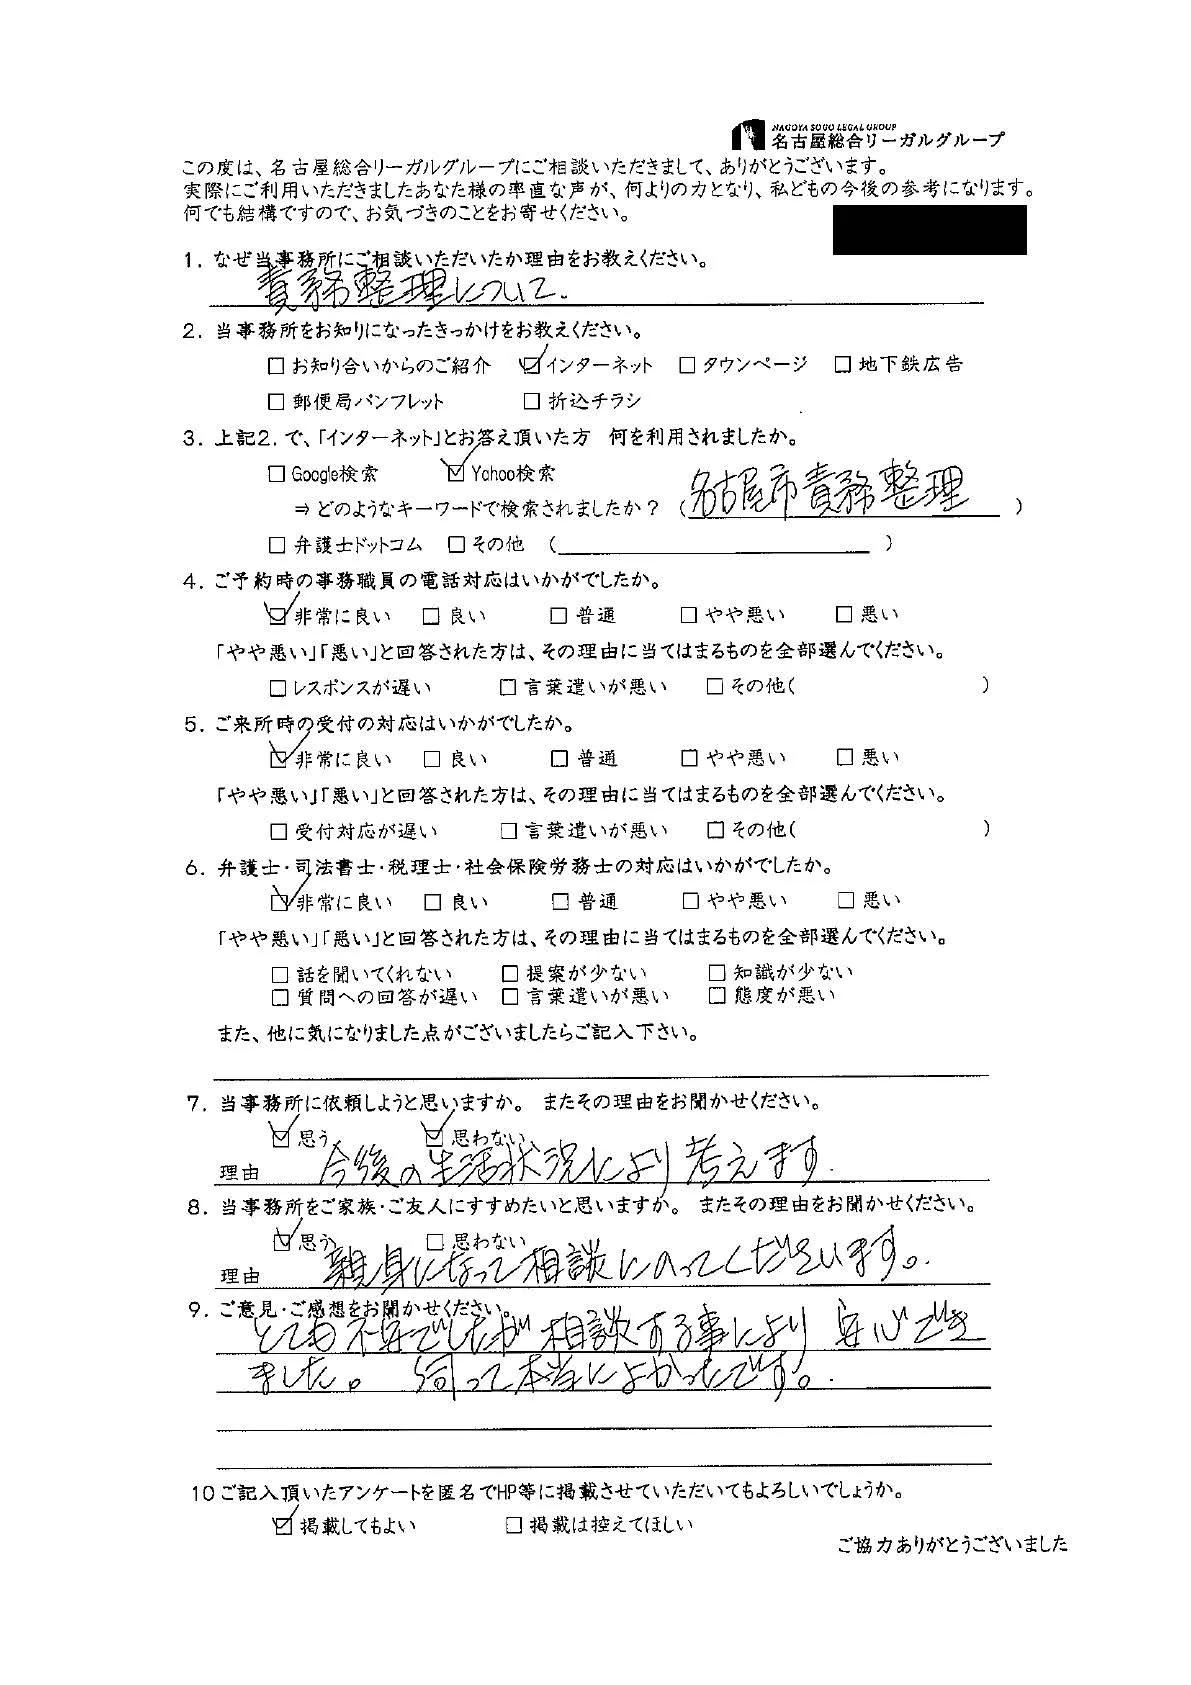 NAGOYA SOGO LEGAL GROUP
名古屋総合リーガルグループ
この度は、名古屋総合リーガルグループにご相談いただきまして、ありがとうございます。
実際にご利用いただきましたあなた様の率直な声が、何よりの力となり、私どもの今後の参考になります。
何でも結構ですので、お気づきのことをお寄せください。
1. なぜ当事務所にご相談いただいたか理由をお教えください。
責務整理について.
2. 当事務所をお知りになったきっかけをお教えください。
□ お知り合いからのご紹介 ☑ インターネット □ タウンページ □ 地下鉄広告
□ 郵便局パンフレット □ 折込チラシ
3. 上記2. で、「インターネット」とお答え頂いた方 何を利用されましたか。
□ Google検索 ☑ Yahoo検索
⇒ どのようなキーワードで検索されましたか？ (名古屋市責務整理)
□ 弁護士ドットコム □ その他 ( )
4. ご予約時の事務職員の電話対応はいかがでしたか。
☑ 非常に良い □ 良い □ 普通 □ やや悪い □ 悪い
「やや悪い」「悪い」と回答された方は、その理由に当てはまるものを全部選んでください。
□ レスポンスが遅い □ 言葉遣いが悪い □ その他( )
5. ご来所時の受付の対応はいかがでしたか。
☑ 非常に良い □ 良い □ 普通 □ やや悪い □ 悪い
「やや悪い」「悪い」と回答された方は、その理由に当てはまるものを全部選んでください。
□ 受付対応が遅い □ 言葉遣いが悪い □ その他( )
6. 弁護士・司法書士・税理士・社会保険労務士の対応はいかがでしたか。
☑ 非常に良い □ 良い □ 普通 □ やや悪い □ 悪い
「やや悪い」「悪い」と回答された方は、その理由に当てはまるものを全部選んでください。
□ 話を聞いてくれない □ 提案が少ない □ 知識が少ない
□ 質問への回答が遅い □ 言葉遣いが悪い □ 態度が悪い
また、他に気になりました点がございましたらご記入下さい。
7. 当事務所に依頼しようと思いますか。 またその理由をお聞かせください。
☑ 思う ☑ 思わない
理由 今後の生活状況により考えます.
8. 当事務所をご家族・ご友人にすすめたいと思いますか。 またその理由をお聞かせください。
☑ 思う □ 思わない
理由 親身になって相談にのってくださいます。.
9. ご意見・ご感想をお聞かせください。
とても不安でしたが相談する事により安心でき
ました。 伺って本当によかったです。.
10 ご記入頂いたアンケートを匿名でHP等に掲載させていただいてもよろしいでしょうか。
☑ 掲載してもよい □ 掲載は控えてほしい
ご協力ありがとうございました